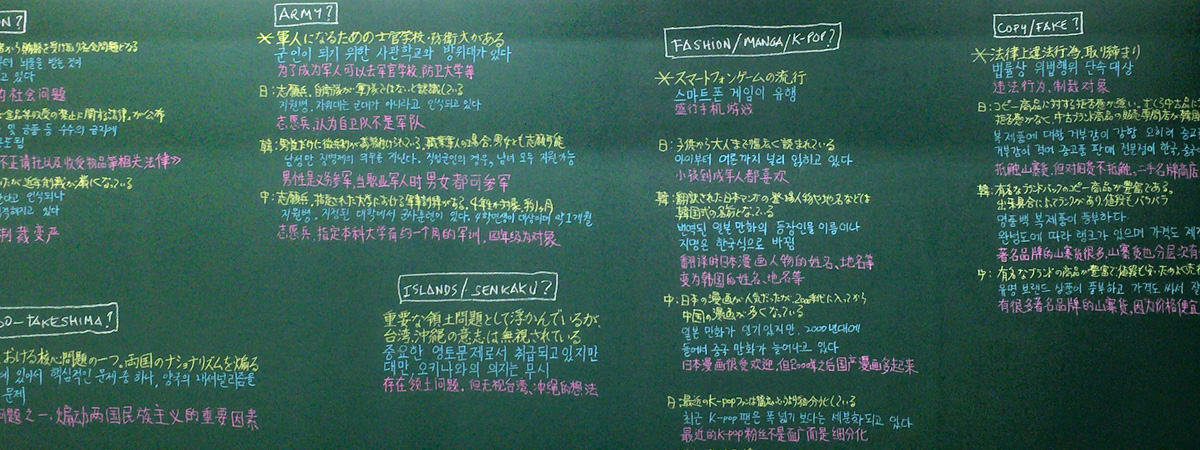 ARMY?
※軍人になるための士官学校・防衛大がある
군인이 되기 위한 사관학교와 방위대가 있다
为了成为军人可以去军官学校、防卫大学等
日:志願兵、自衛隊が軍隊ではないと認識している
지원병, 자위대는 군대가 아니라고 인식되고 있다
志愿兵、认为自卫队不是军队
韓:男女ともに
職業軍人の場合、男女とも志願可能
남성만 징병제의 의무를 가진다. 직업군인의 경우, 남녀 모두 지원가능
男性是义务参军、当职业军人时男女都可参军
中:志願兵、指定された大学における軍事訓練がある。4年生が対象、約1ヶ月
지원병, 지정된 대학에서 군사훈련이 있다. 4학년생이 대상이며 약 1개월
志愿兵、指定本科大学有约一个月的军训, 四年级为对象
的社会问题
相关法律》
制裁变严
DO-TAKESHIMA?
おける核心問題の一つ。両国のナショナリズムを煽る
있어서 핵심적인 문제 중 하나, 양국의 내셔널리즘을
문제
问题之一、煽动两国民族主义的重要因素
ISLANDS/SENKAKU?
重要な領土問題として浮かんでいるが、
台湾、沖縄の意志は無視されている
중요한 영토문제로서 취급되고 있지만
대만, 오키나와의 의지는 무시
存在领土问题, 但无视台湾、冲绳的想法
FASHION/MANGA/K-POP?
※スマートフォンゲームの流行
스마트폰 게임이 유행
盛行手机游戏
日:子供から大人まで幅広く読まれている
아이부터 어른까지 널리 읽히고 있다
小孩到成年人都喜欢
韓:翻訳された日本マンガの登場人物や地名などは
韓国式の名前となっている
번역된 일본 만화의 등장인물 이름이나
지명은 한국식으로 바뀜
翻译时日本漫画人物的姓名、地名等
变为韩国的姓名、地名等
中:日本の漫画が人気だったが、2000年代に入ってから
中国の漫画が多くなっている
일본 만화가 인기 있지만, 2000년대에
들어서 중국 만화가 늘어나고 있다
日本漫画很受欢迎, 但2000年之后国产漫画多起来
日:最近のK-popファンは幅広いというより細分化している
최근 K-pop 팬은 폭 넓기 보다는 세분화되고 있다
最近的K-pop粉丝不是面广而是细分化
COPY/FAKE?
※法律上違法行為、取り締まり
법률상 위법행위 단속 대상
违法行为、制裁对象
日:コピー商品に対する拒否感が強い。むしろ中古品に
拒否感がなく、中古ブランド商品の販売専門店が
복제품에 대한 거부감이 강함 오히려 중고
거부감이 적어 중고품 판매 전문점이 한국, 중국
抵触山寨货, 但对旧货不抵触、二手名牌商店
韓:有名なブランドバッグのコピー商品が豊富である。
出来具合によってランクがあり、値段もバラバラ
명품백 복제품이 풍부하다.
완성도에 따라 랭크가 있으며 가격도 제각
著名品牌的山寨货很多, 山寨货也分层次有
中:有名なブランドの商品が豊富で値段も安いためよく売
유명 브랜드 상품이 풍부하고 가격도 싸서 잘
有很多著名品牌的山寨货, 因为价格便宜